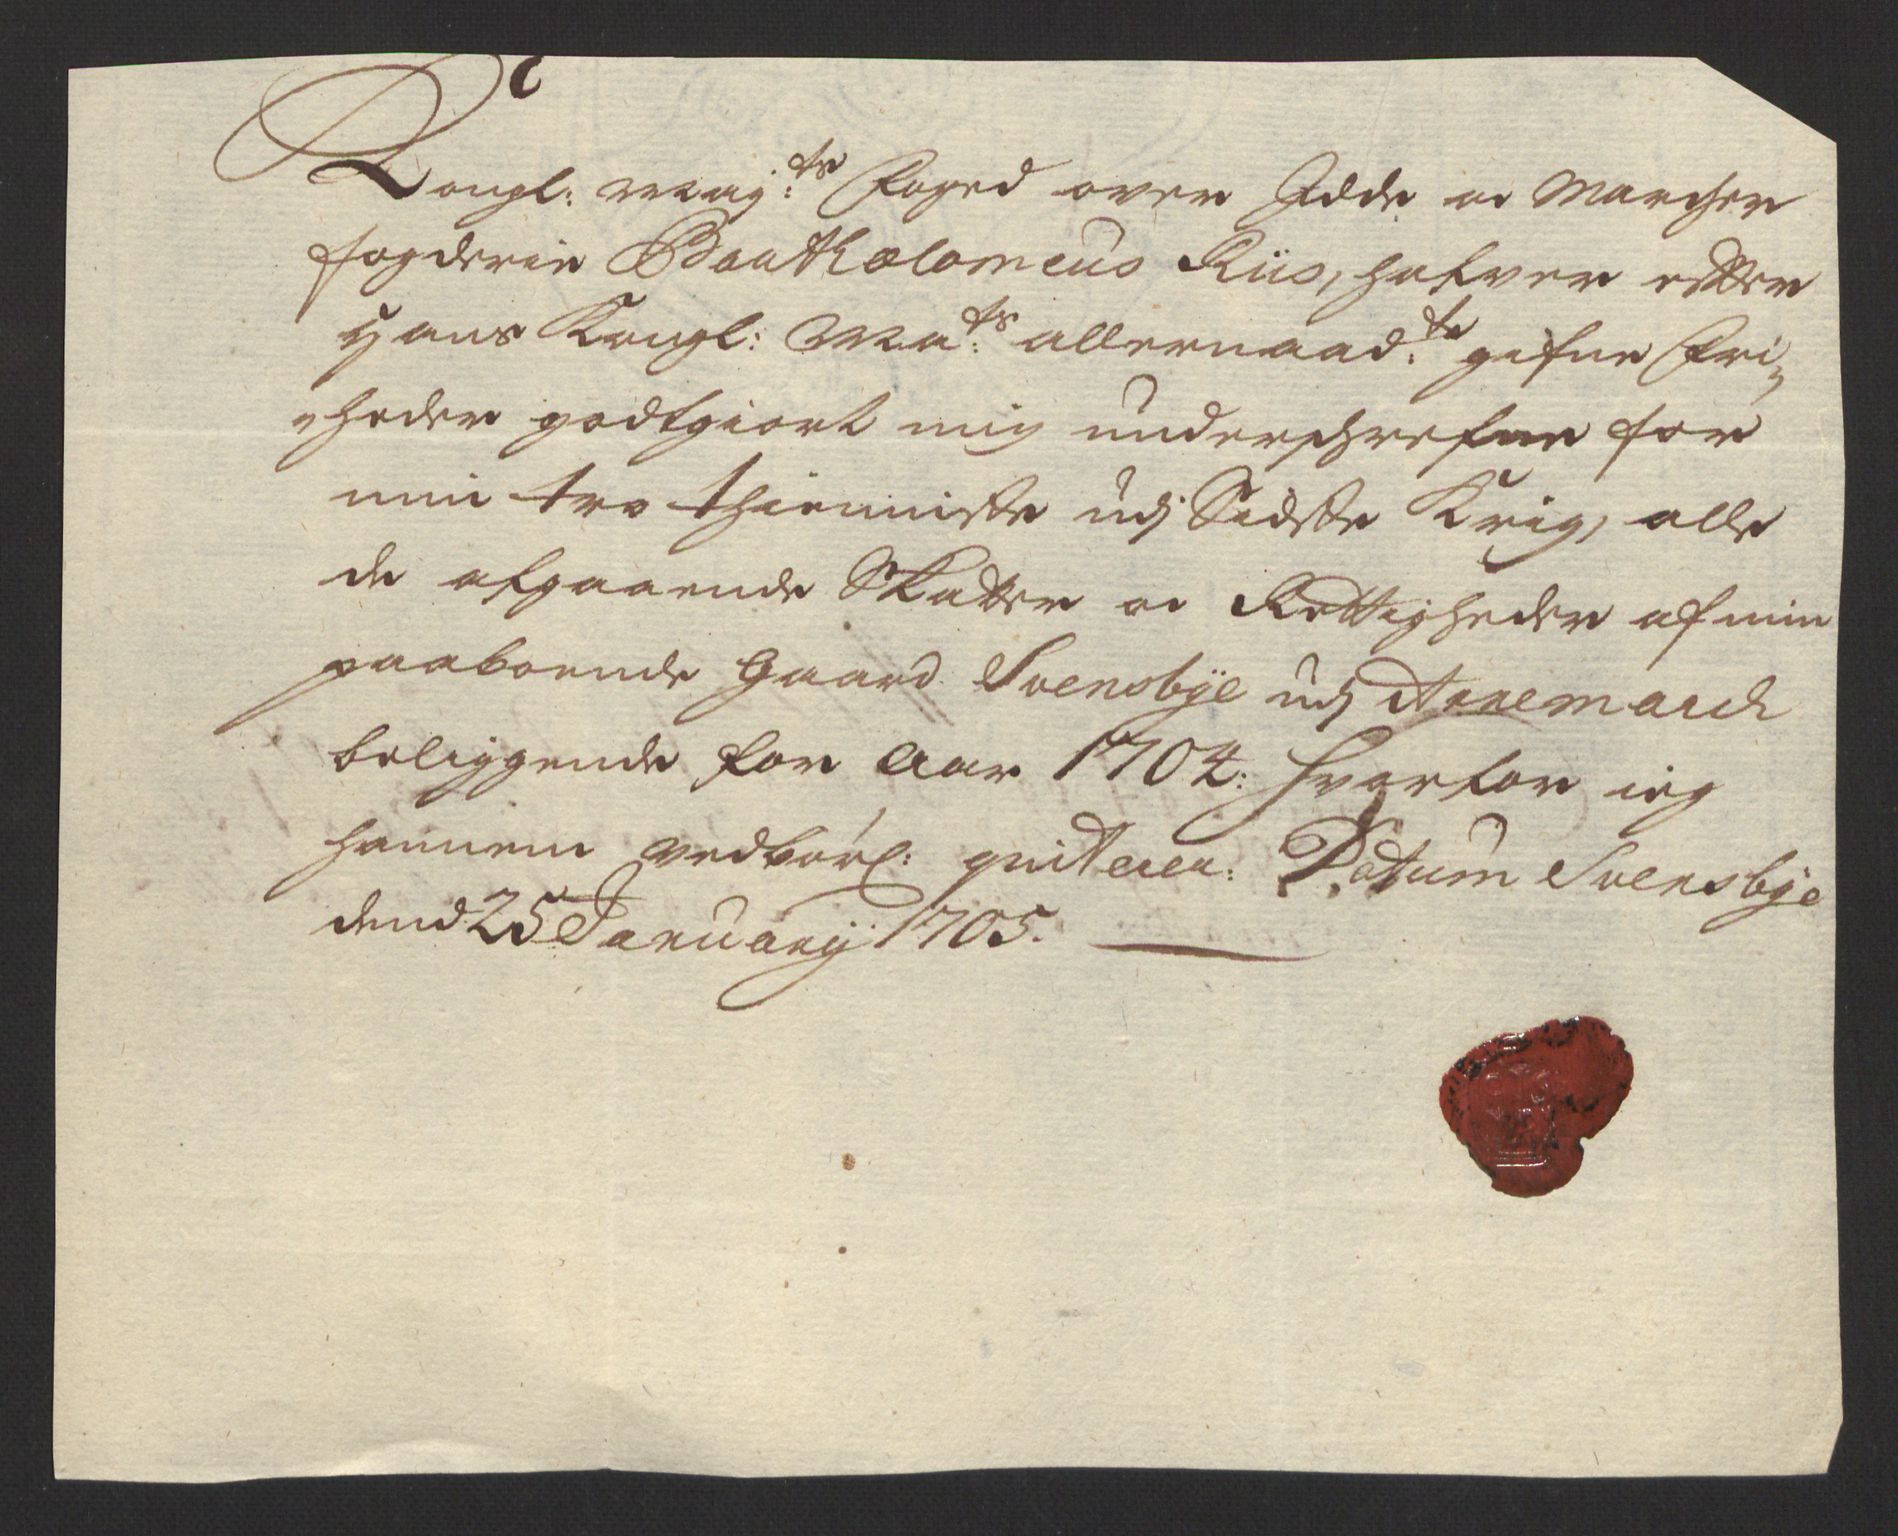 Kongl: May:ts Foged over Idde oc Marcher
fogderie Bartholomeus Riis, hafver efter
Hans Kongl: Ma:ts allernaad:te gifne Fri-
heder godtgiort mig underschrefne for
min tro thienniste udj Sidste Krig, alle
de afgaaende Skatter oc Rettigheder af min
paaboende Gaard Svensbÿe udj Arremarck
beliggende for Aar 1704: Hvorfor ieg
hannem vedbørl: qviterer. Datum Svensbÿe
dend 25 Januarij 1705.